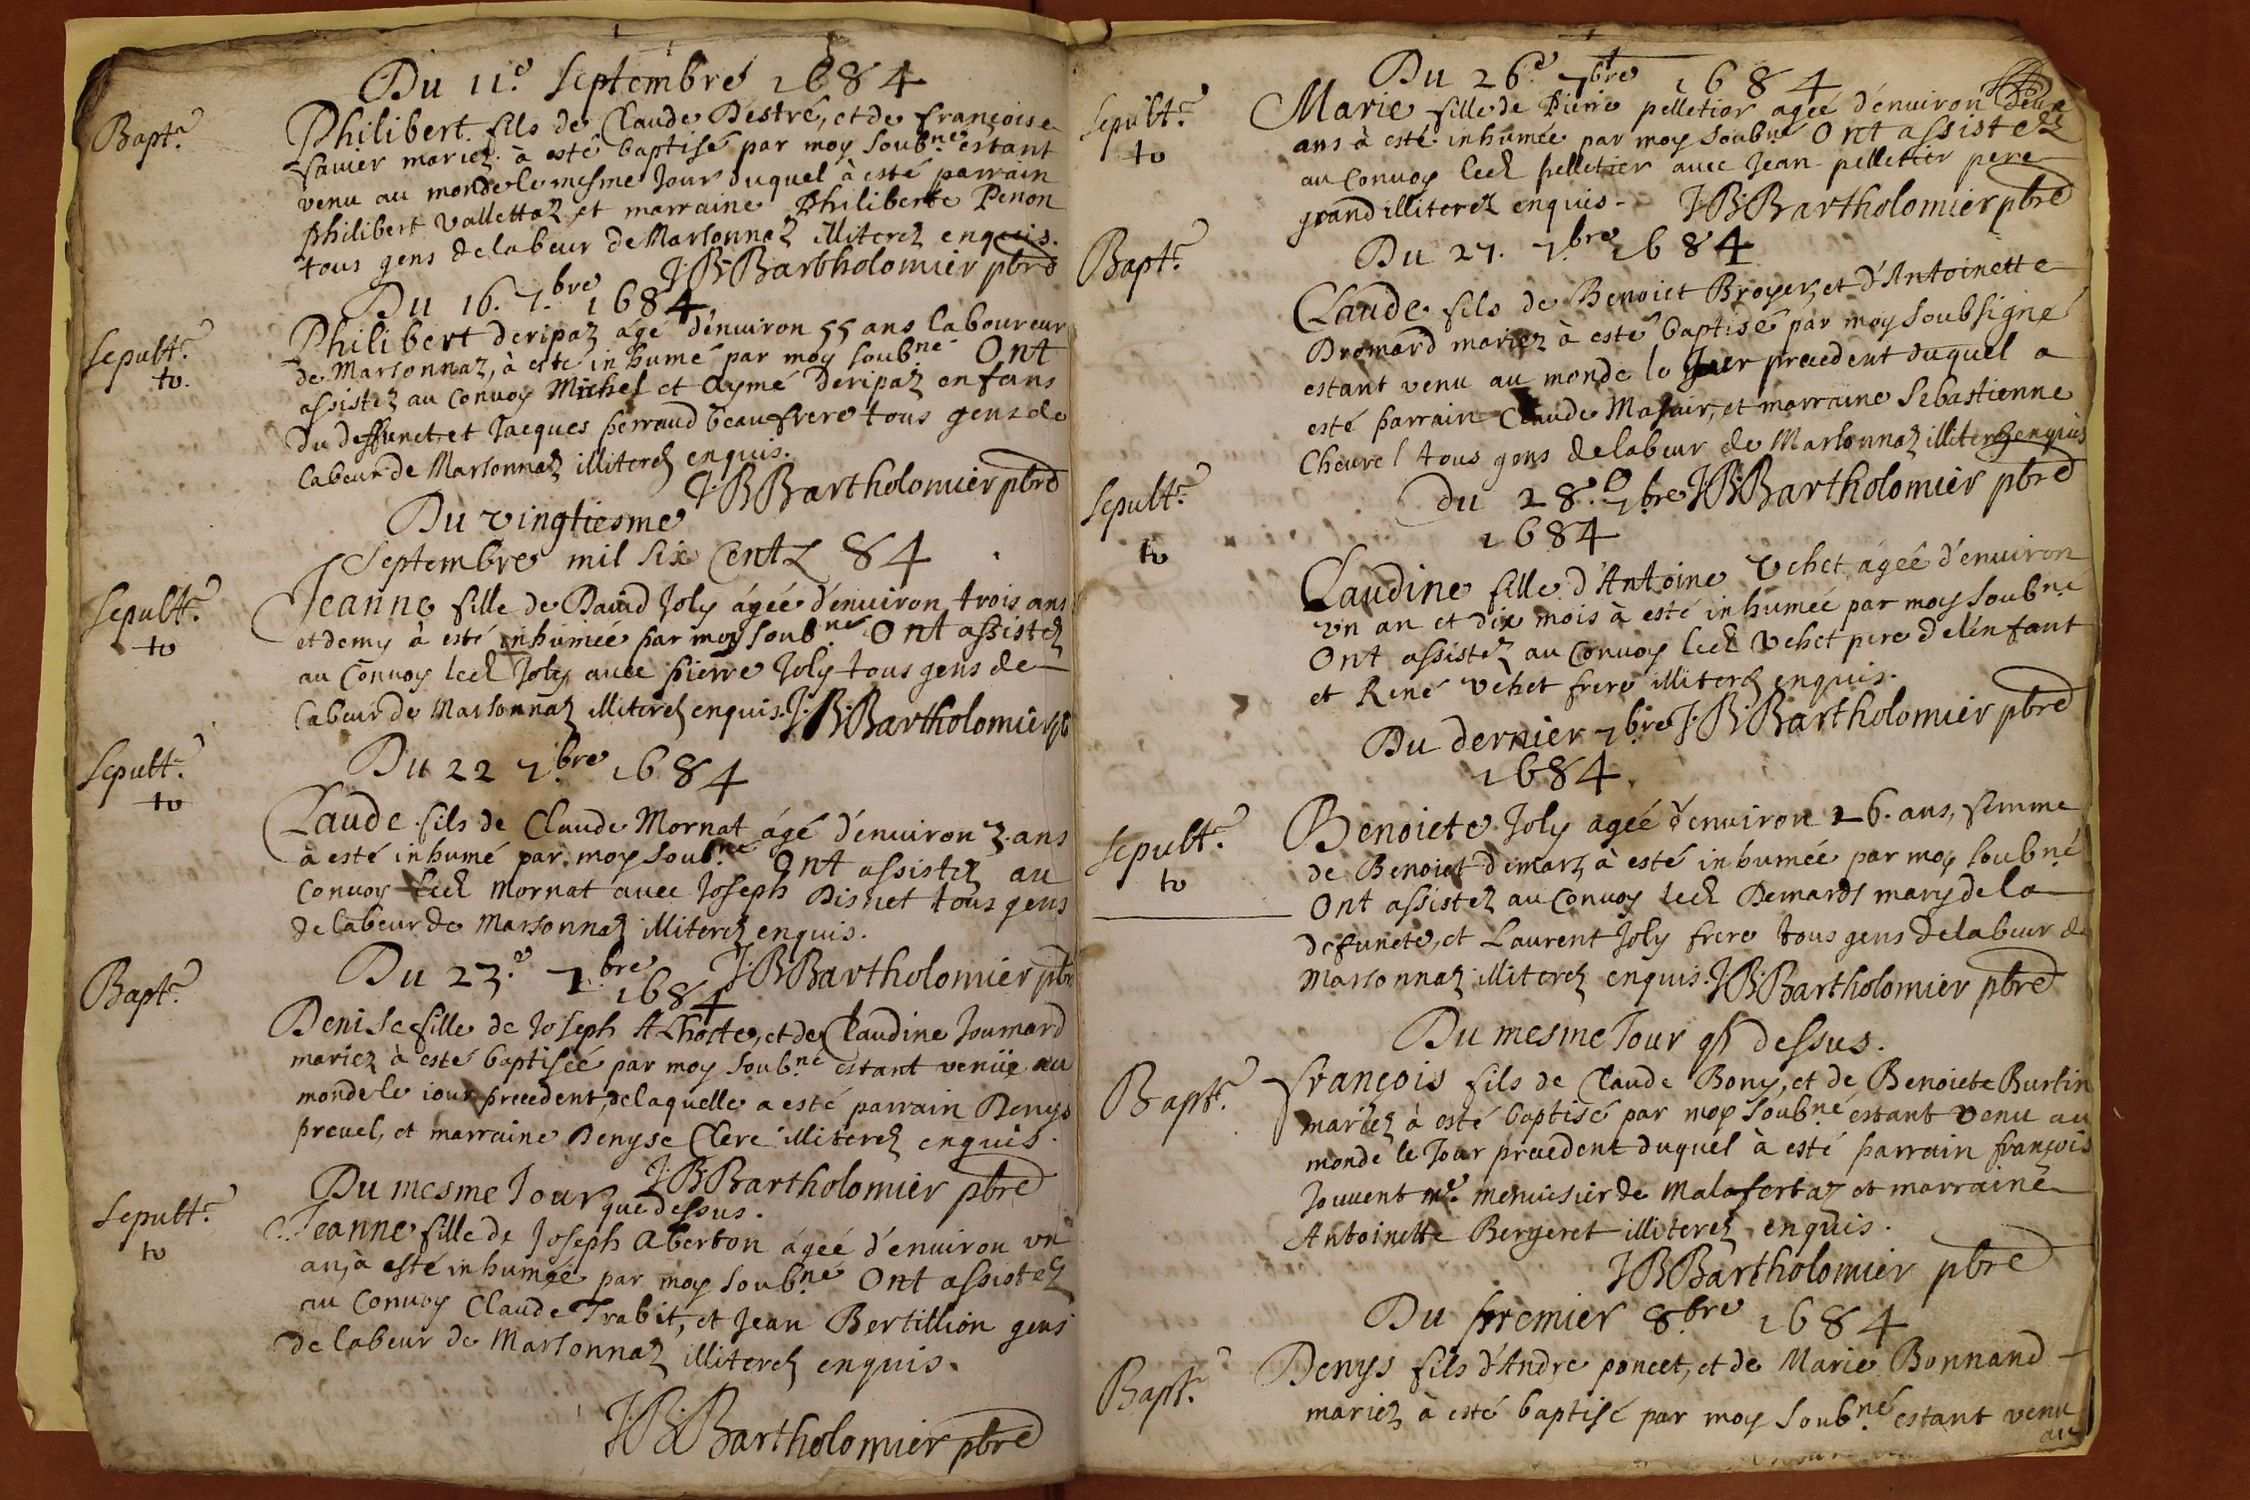 Du 11.e Septembre 1684
Bapt.e
Philibert fils de Claude Destré, et de françoise
savier mariez à esté baptisé par moy soub.né estant
venu au monde le mesme Jour duquel à esté parrain
philibert vallettaz et marraine Philiberte Penon
tous gens de labeur de Marsonnaz illiterez enquis.
J. B. Bartholomier pbre
Du 16. 7.bre 1684
Sepult.e
to.
Philibert deripaz agé d'enuiron 55 ans laboureur
de Marsonnaz, à esté inhumé par moy soub.né Ont
assistez au Conuoy Michel et Aymé deripaz enfans
du deffunct et Jacques perraud beaufrere tous gens de
labeur de Marsonnaz illiterez enquis.
J. B Bartholomier pbre
Du vingtiesme
Septembre mil six Centz 84
Sepult.e
to
Jeanne fille de Dauid Joly ágée d'enuiron trois ans
et demy à esté inhumée par moy soub.né Ont assistez
au Conuoy led Joly auec pierre Joly tous gens de
labeur de Marsonnaz illiterez enquis. J. B. Bartholomier pb
Du 22 7.bre 1684
Sepult.e
to
Claude fils de Claude Mornat ágé d'enuiron 3. ans
à esté inhumé par moy soub.né Ont assistez au
Conuoy led mornat auec Joseph Disnet tous gens
de labeur de Marsonnaz illiterez enquis.
J. B Bartholomier pbr
Du 23.e 7.bre
1684
Bapt.e
Denise fille de Joseph Alhoste, et de Claudine Joumard
mariez à esté baptisée par moy soub.né estant venüe au
monde le iour precedent, de laquelle a esté parrain Denys
preuel, et marraine Denyse Clerc illiterez enquis.
J. B. Bartholomier pbre
Du mesme Jour
que dessus.
Sepult.e
to
Jeanne fille de Joseph Aberton ágée d'enuiron vn
an, à esté inhumée par moy soub.né Ont assistez
au Conuoy Claude Trabit, et Jean Bertillion gens
de labeur de Marsonnaz illiterez enquis.
J. B. Bartholomier pbre
Du 26.e 7.bre 1684
Sepult.e
to
Marie fille de Pierre pelletier agée d'enuiron deux
ans à esté inhumée par moy soub.né Ont assistez
au Conuoy led pelletier auec Jean pelletier pere
grand illiterez enquis. J. B. Bartholomier pbre
Du 27. 7.bre 1684
Bapt.e
Claude fils de Benoict Broyer, et d'Antoinette
Dromard mariez à esté baptisé par moy soubsigné
estant venu au monde le Jour precedent duquel a
esté parrain Claude Masuir, et marraine Sebastienne
Cheurel tous gens de labeur de Marsonnaz illiterez enquis
Du 28.e 7.bre J. B. Bartholomier pbre
1684
Sepult.e
to
Claudine fille d'Antoine Vehet, agée d'enuiron
vn an et dix mois à esté inhumée par moy soub.né
Ont assistez au Conuoy led Vehet pere de l'enfant
et René Vehet frere illiterez enquis.
Du dernier 7.bre J. B. Bartholomier pbre
1684.
Sepult.e
to
Benoicte Joly agée d'enuiron 26. ans, femme
de Benoict demarz à esté inhumée par moy soub.né
Ont assistez au Conuoy led Demards mary de la
defuncte, et Laurent Joly frere tous gens de labeur de
Marsonnaz illiterez enquis. J. B. Bartholomier pbre
Du mesme Jour q dessus.
Bapt.e
françois fils de Claude Bony, et de Benoicte Burtin
mariez à esté baptisé par moy soub.né estant venu au
monde le Jour precedent duquel à esté parrain françois
Jouuent m.e menuisier de Malafertaz et marraine
Antoinette Bergeret illiterez enquis.
J. B. Bartholomier pbre
Du premier 8.bre 1684
Bapt.e
Denys fils d'Andre poncet, et de Marie Bonnand
mariez à esté baptisé par moy soub.né estant venu
au